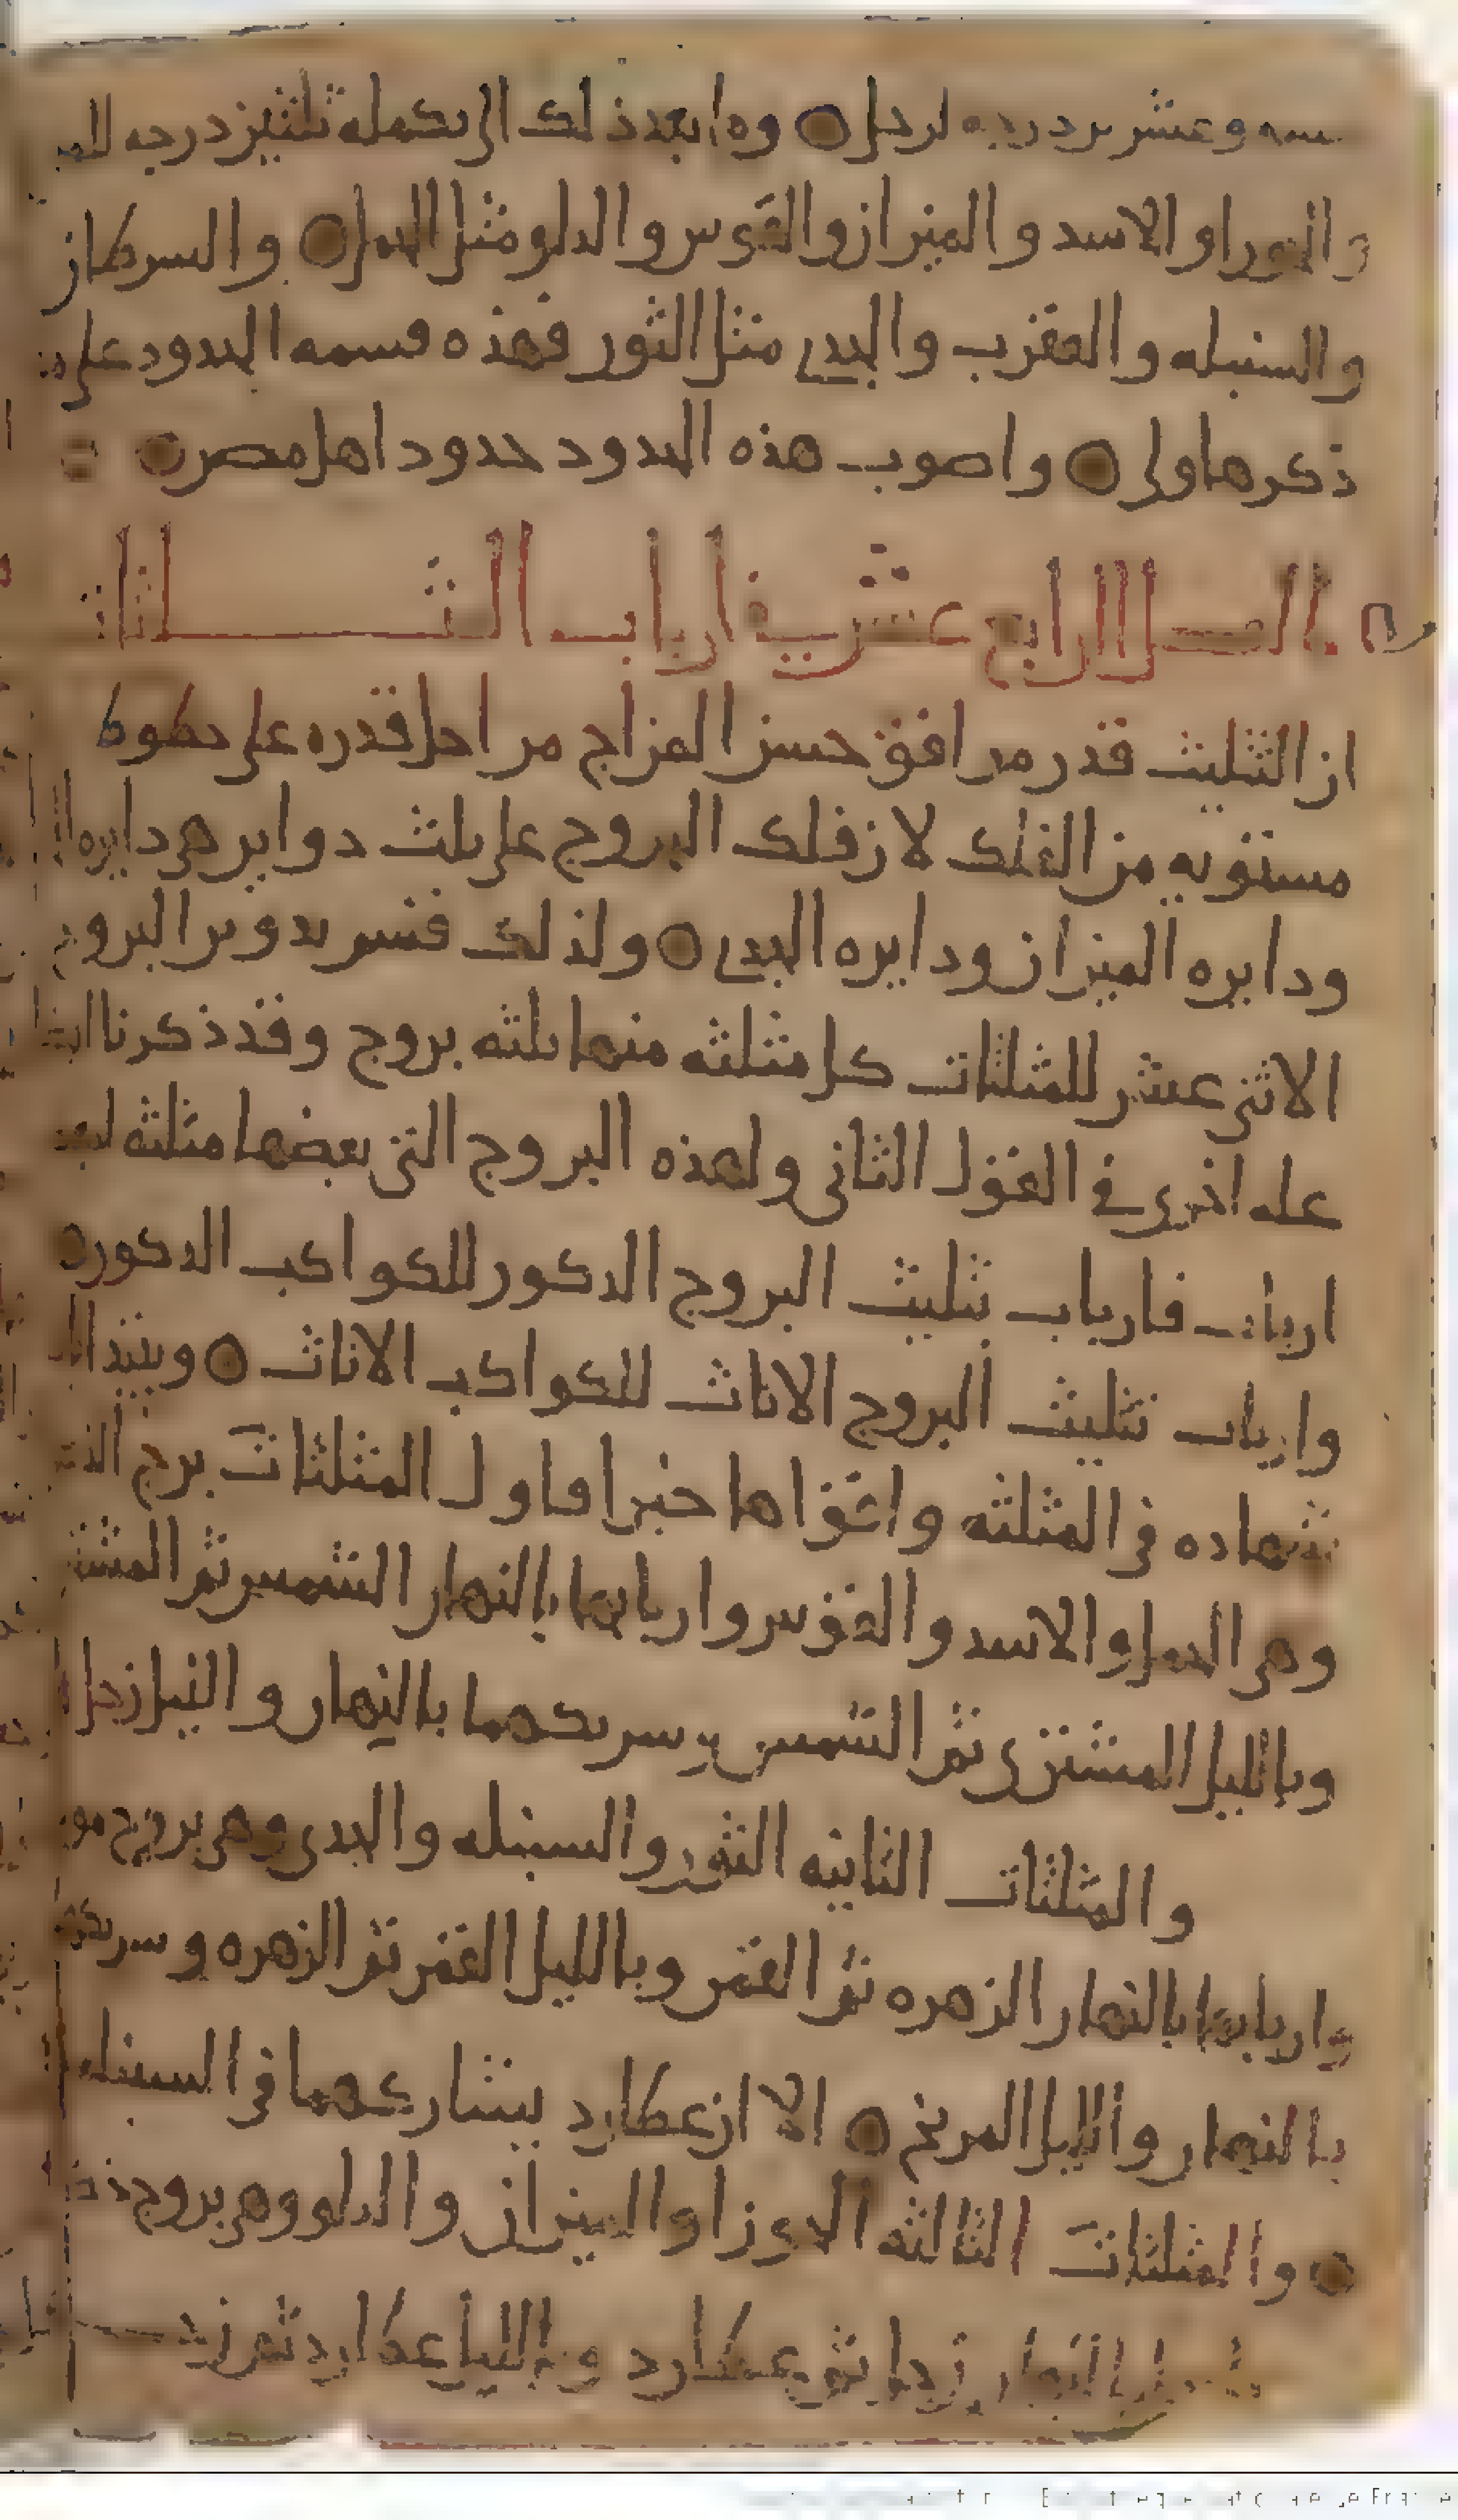 وعشرين درجه لزحل ○ وما بعد ذلك الى تكمله ثلثين درجه
والاسد والميزان والقوس والدلو مثل الحمل ○ والسرطان
والسنبله والعقرب والجدى مثل الثور فهذه قسمه الحدود على
ذكرها ولى ○ واصوب هذه الحدود حدود اهل مصر ○
الفصل الرابع عشر فى ارباب المثلثات
ان التثليث قدر موافق حسن المزاج من اجل قدره على خطوط
مستويه من الفلك لان فلك البروج على ثلث دواير هى دايره
ودايره الميزان ودايره الجدى ○ ولذلك قسم تدوير البروج
الاثنى عشر للمثلثات كل مثلثه منها ثلثه بروج وقد ذكرنا
عله اخرى فى القول الثانى ولهذه البروج التى بعضها مثلثه
ارباب فارباب تثليث البروج الذكور للكواكب الذكوره
وارباب تثليث البروج الاناث للكواكب الاناث ○
شهاده فى المثلثه واقواها خبرا فاول المثلثات برج
وهى الحمل والاسد والقوس واربابها بالنهار الشمس ثم
وبالليل المشترى ثم الشمس وشريكهما بالنهار والليل زحل
والمثلثات الثانيه الثور والسنبله والجدى وهى بروج
واربابها بالنهار الزهره ثم القمر وبالليل القمر ثم الزهره
بالنهار والليل المريخ ○ الا ان عطارد يشاركهما فى السنبله
○ والمثلثات الثالثه الجوزا والميزان والدلو وهى بروج
بالنهار زحل ثم عطارد وبالليل عطارد ثم